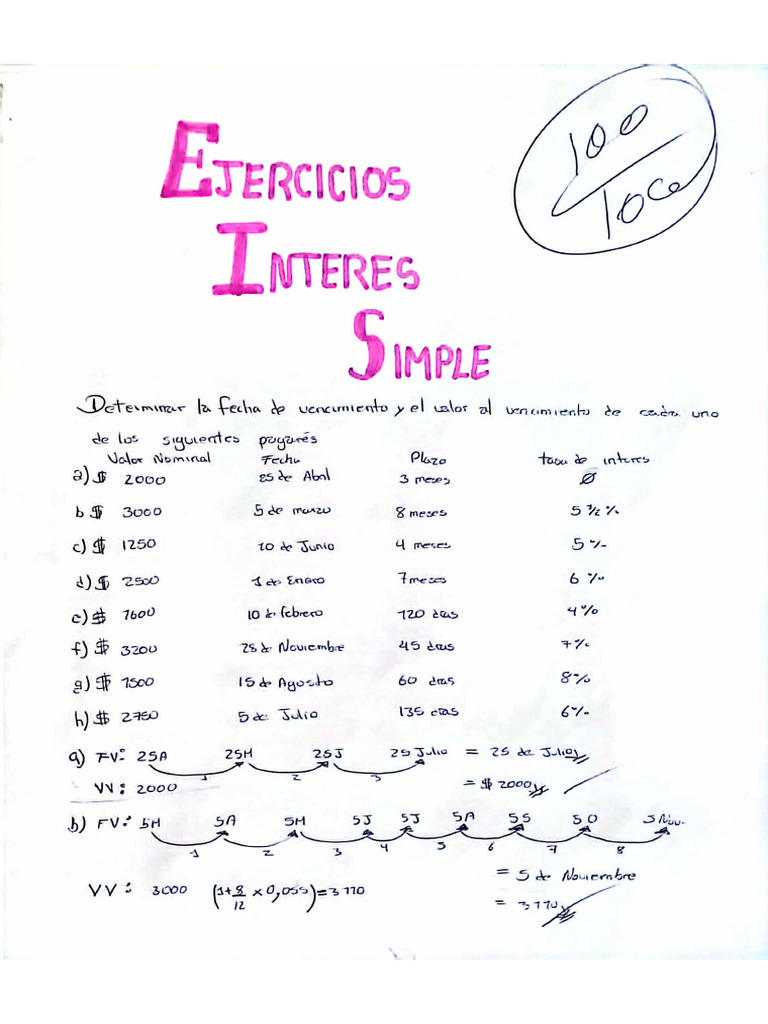 100
100
EJERCICIOS
INTERES
SIMPLE
Determinar la fecha de vencimiento y el valor al vencimiento de cada uno
de los siguientes pagarés
Valor Nominal Fecha Plazo tasa de interes
a) $ 2000 25 de Abril 3 meses Ø
b $ 3000 5 de marzo 8 meses 5 1/2 %
c) $ 1250 10 de Junio 4 meses 5 %
d) $ 2500 1 de Enero 7 meses 6 %
e) $ 1600 10 de febrero 120 dias 4%
f) $ 3200 28 de Noviembre 45 dias 7%
g) $ 1500 15 de Agosto 60 dias 8%
h) $ 2750 5 de Julio 135 dias 6%
a) FV: 25A 25M 25J 25 Julio = 25 de Julio
1 2 3
VV: 2000 = $ 2000
b) FV: 5M 5A 5M 5J 5J 5A 5S 5O 5 Nov.
1 2 3 4 5 6 7 8
= 5 de Noviembre
VV: 3000 (1+8/12 x 0,055)=3110
= 3110